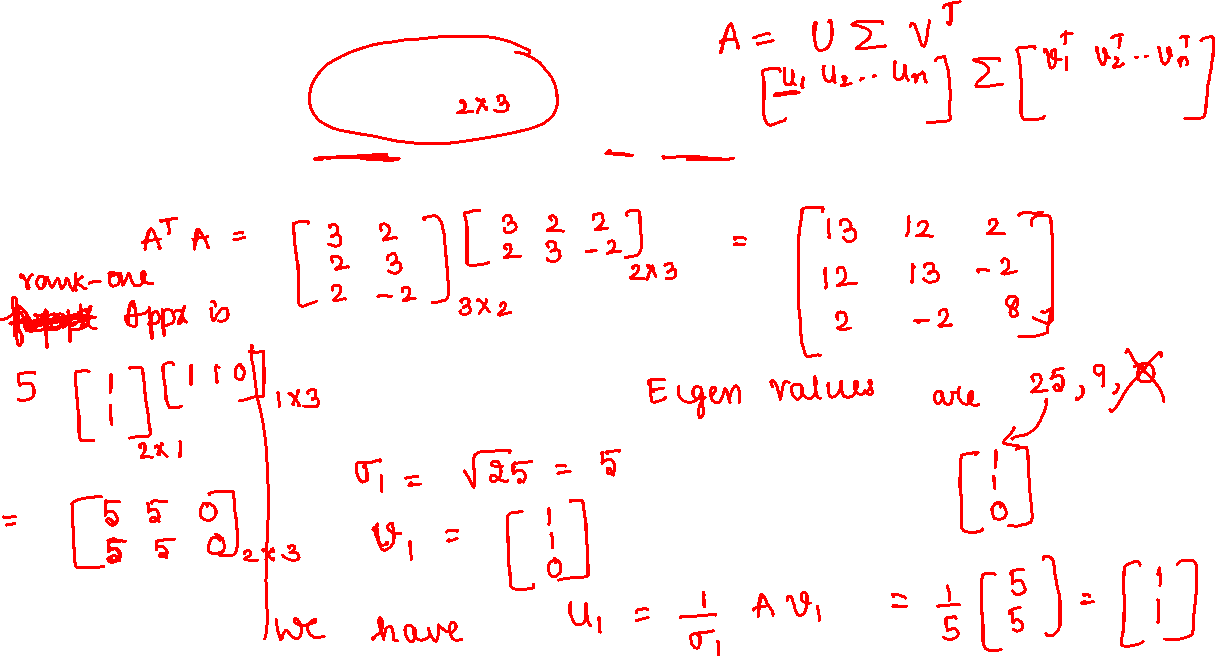 A = U Σ V^T
[u₁ u₂ .. uₙ] Σ [v₁^T v₂^T .. vₙ^T]
2×3
A^T A = [3 2; 2 3; 2 -2]₃ₓ₂ [3 2 2; 2 3 -2]₂ₓ₃ = [13 12 2; 12 13 -2; 2 -2 8]
rank-one
Appx is
5 [1; 1]₂ₓ₁ [1 1 0]₁ₓ₃
= [5 5 0; 5 5 0]₂ₓ₃
Eigen values are 25, 9, 0
[1; 1; 0]
σ₁ = √25 = 5
v₁ = [1; 1; 0]
We have u₁ = 1/σ₁ A v₁ = 1/5 (5; 5) = [1; 1]